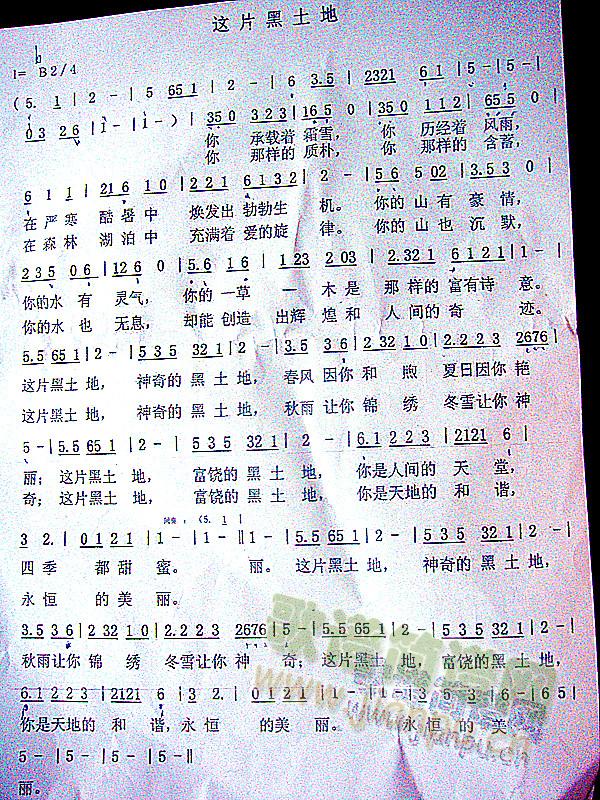 这片黑土地
1= ♭B 2/4
( 5. 1 | 2 - | 5 651 | 2 - | 6 3.5 | 2321 6 1 | 5 - | 5 - |
03 26 | 1 - | 1 - ) | 350 323 | 165 0 | 350 112 | 655 0 |
你 承载着 霜雪, 你 历经着 风雨,
你 那样的 质朴, 你 那样的 含蓄,
6 1 1 | 216 10 | 221 6132 | 2 - | 56 502 | 3.53 0 |
在严寒 酷暑中 焕发出 勃勃生 机。 你的山有豪情,
在森林 湖泊中 充满着 爱的旋 律。 你的山也沉默,
235 06 | 126 0 | 5.6 16 | 1 23 203 | 2.321 6121 | 1 - |
你的水有 灵气, 你的一草 一木是 那样的富有诗 意。
你的水也 无息, 却能创造 出辉煌和 人间的奇 迹。
5.5 651 | 2 - | 535 321 | 2 - | 3.5 36 | 232 10 | 2.223 2676 |
这片黑土地, 神奇的黑土地, 春风因你和煦 夏日因你艳
这片黑土地, 神奇的黑土地, 秋雨让你锦绣 冬雪让你神
5 - | 5.5 651 | 2 - | 535 321 | 2 - | 6.1 223 | 2121 6 |
丽; 这片黑土地, 富饶的黑土地, 你是人间的天堂,
奇; 这片黑土地, 富饶的黑土地, 你是天地的和谐,
(5. 1 |
3 2. | 0121 | 1 - | 1 - ‖ 1 - | 5.5 651 | 2 - | 535 321 | 2 - |
四季 都甜蜜。 丽。 这片黑土地, 神奇的黑土地,
永恒 的美丽。
3.5 36 | 232 10 | 2.223 2676 | 5 - | 5.5 651 | 2 - | 535 321 | 2 - |
秋雨让你锦绣 冬雪让你神 奇; 这片黑土地, 富饶的黑土地,
6.1 223 | 2121 6 | 3 2. | 0121 | 1 - | 1 - | 3 2. | 5 - | 6 - | 65 |
你是天地的和谐, 永恒 的美丽。 永恒的美
5 - | 5 - | 5 - | 5 - ‖
丽。